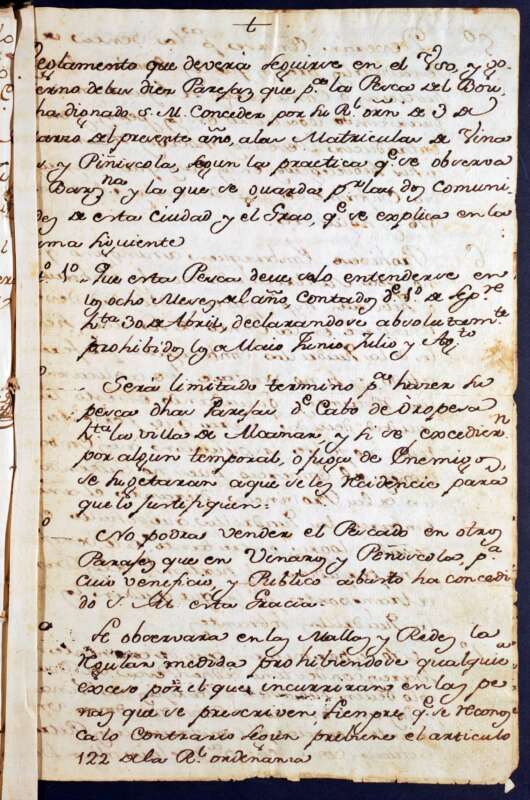 t
eglamento que deverá seguirse en el Uso, y go-
erno delas diez Parejas que p.ª la Pesca del Bou,
ha dignado S. M. Conceder por su R.l orñ de 3 de
arzo del presente año, alas Matriculas de Vina
y Piñiscola, segun la practica q.e se observa
Barz.na y la que se guarda p.r las dos Comuni
des de esta Ciudad y el Grao, q.e se explica en la
ma siguiente
1.º Que esta Pesca deve solo entenderse en
los ocho Meses del año, contados d.e 1.º de Sep.re
h.ta 30 de Abril, declarandose absolutam.te
prohibidos los a Maio Junio Julio y Ag.to
Sera limitado termino p.ª hazer su
pesca dhas Parejas d.e Cabo de Oropesa
h.ta la villa de Alcanar, y si se excedier.n
por algun temporal, o fuga de Enemigos
se sugetaran aque se les Residencie para
que lo justifiquen.
No podra vender el Pescado en otros
Parajes que en Vinaros y Peniscola, p.ª
cuio veneficio, y Publico abasto ha concedi
do S. M. esta Gracia.
Se observara en las Mallas y Redes la
regular medida prohibiendose qualquie.ª
exceso por el que incurriran en las pe
nas que se prescriven siempre q.e se recono
ca lo contrario segun prebiene el articulo
122 de la R.l ordenanza